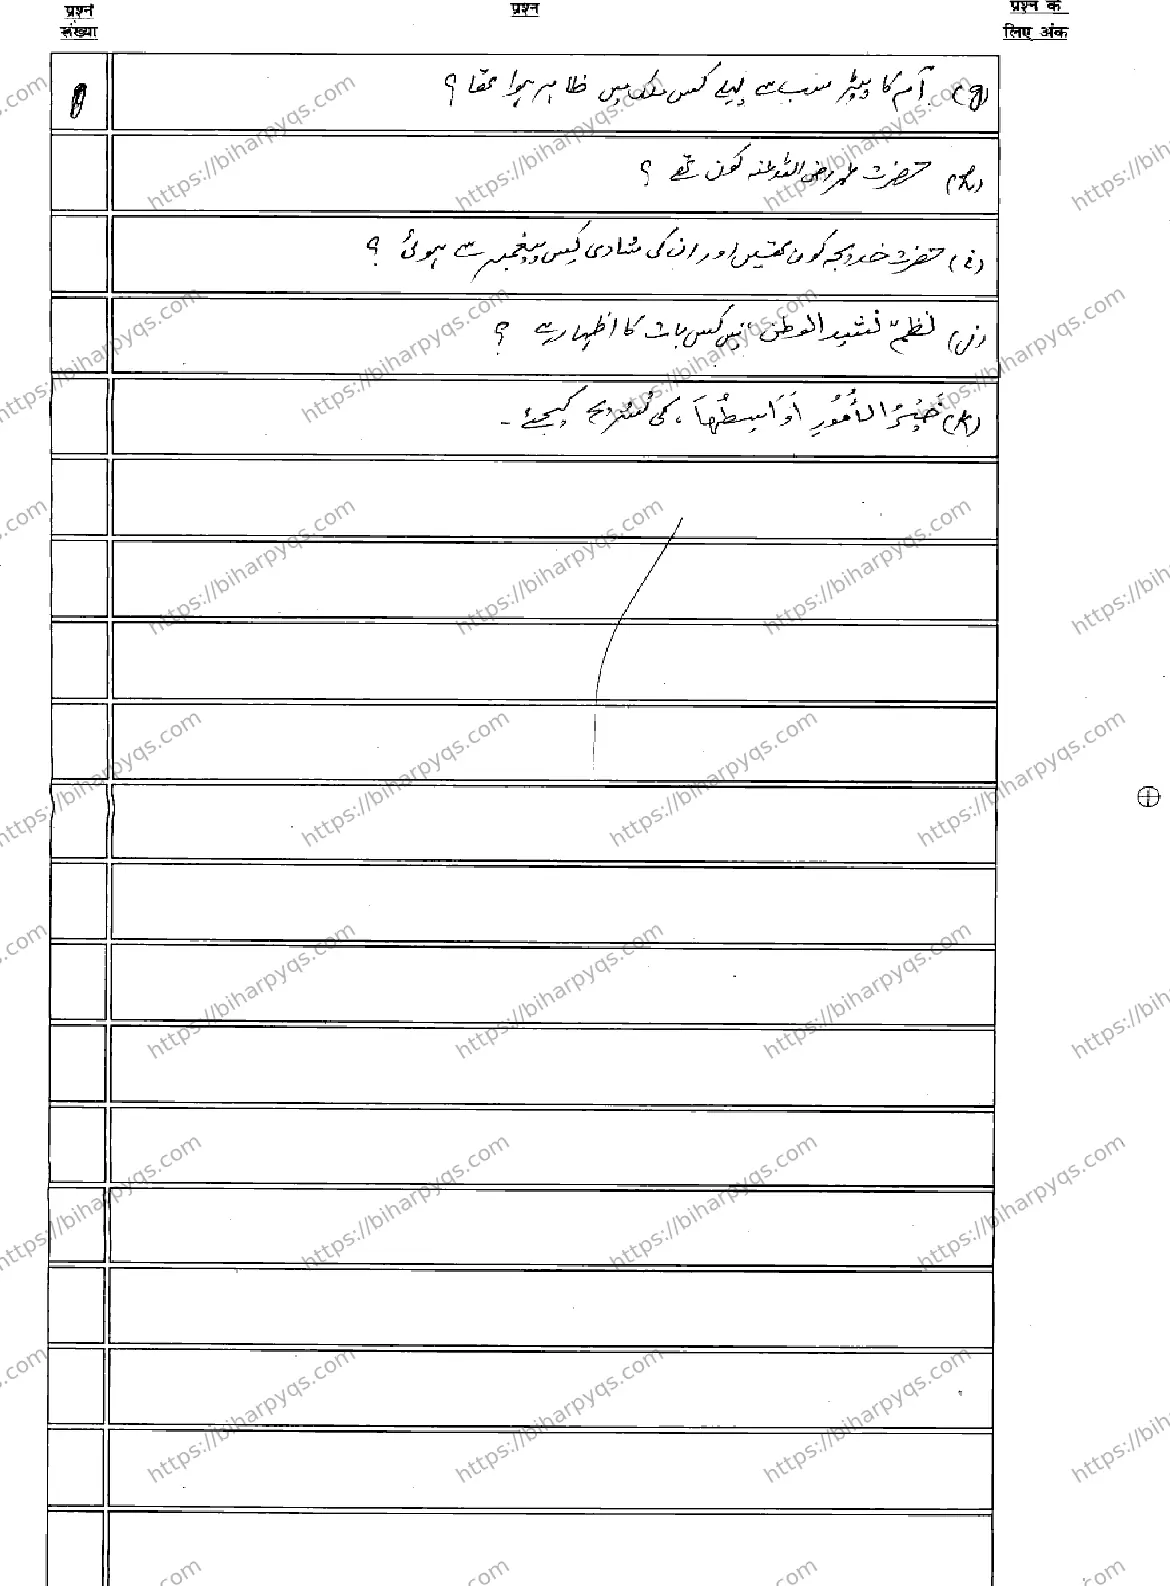 प्रश्न संख्या
प्रश्न
प्रश्न के लिए अंक
(g) آم کا پیڑ سب سے پہلے کس ملک میں ظاہر ہوا تھا ؟
(h) حضرت عمر رضی اللہ عنہ کون تھے ؟
(i) حضرت خدیجہ کون تھیں اور ان کی شادی کس پیغمبر سے ہوئی ؟
(j) نظم "نشید الوطن" میں کس بات کا اظہار ہے ؟
(k) خَیْرُ الْاُمُوْرِ اَوَاسِطُہَا، کی تشریح کیجئے۔
https://biharpyqs.com